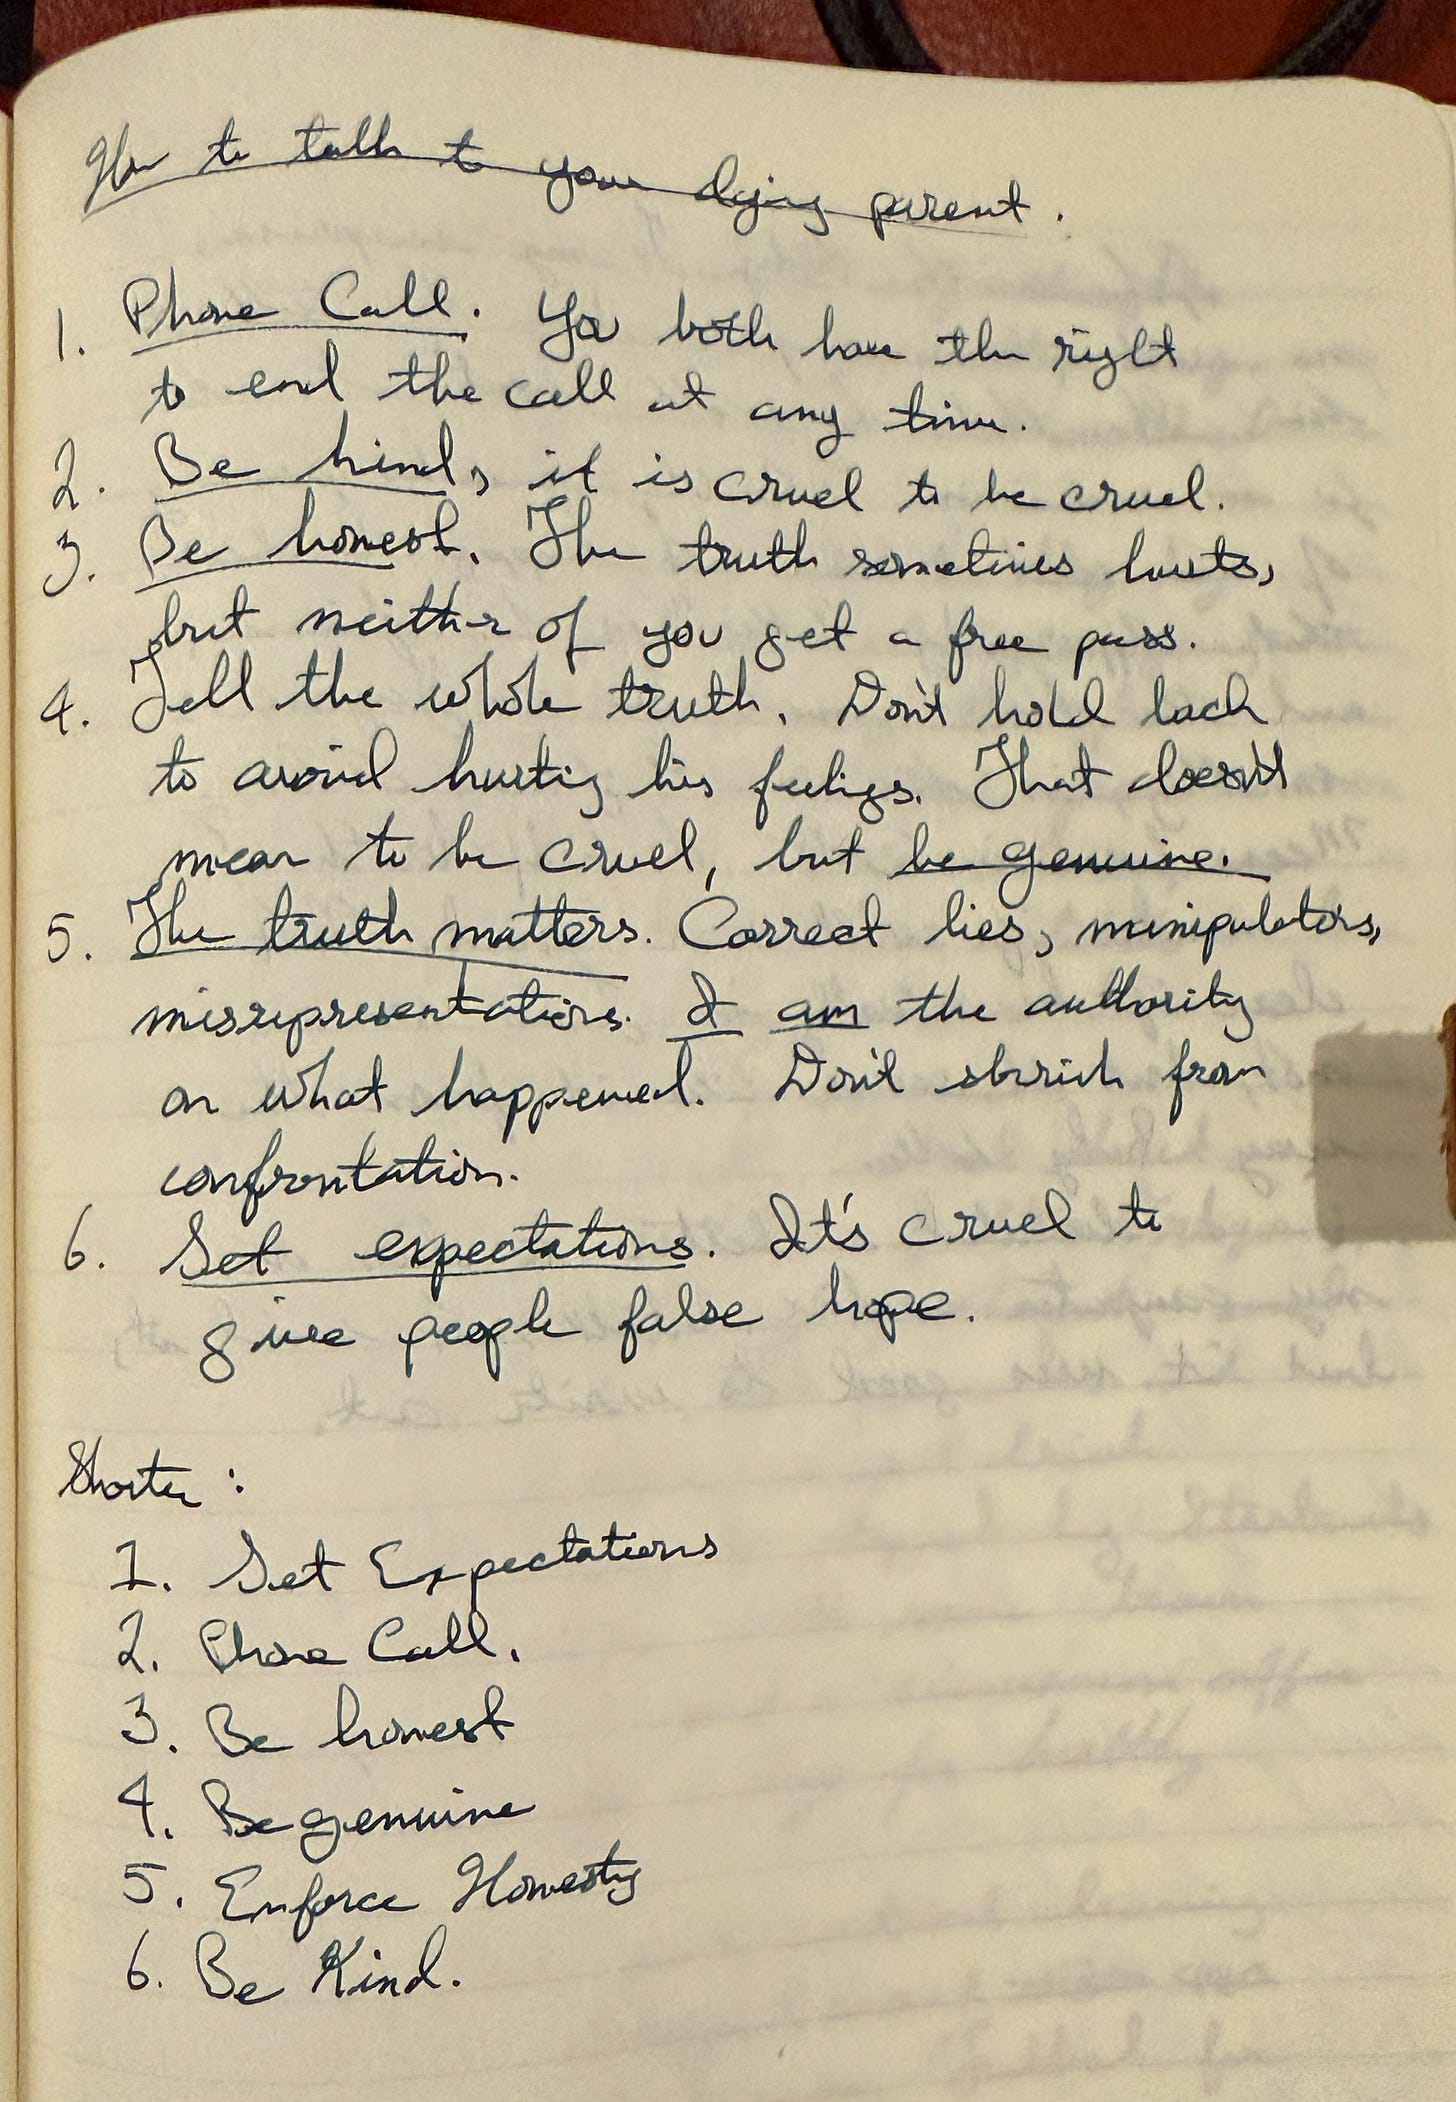 How to talk to your dying parent.
1. Phone Call. You both have the right
to end the call at any time.
2. Be kind, it is cruel to be cruel.
3. Be honest. The truth sometimes hurts,
but neither of you get a free pass.
4. Tell the whole truth. Don't hold back
to avoid hurting his feelings. That doesn't
mean to be cruel, but be genuine.
5. The truth matters. Correct lies, manipulations,
misrepresentations. I am the authority
on what happened. Don't shrink from
confrontation.
6. Set expectations. It's cruel to
give people false hope.
Shorter:
1. Set Expectations
2. Phone Call.
3. Be honest
4. Be genuine
5. Enforce Honesty
6. Be Kind.